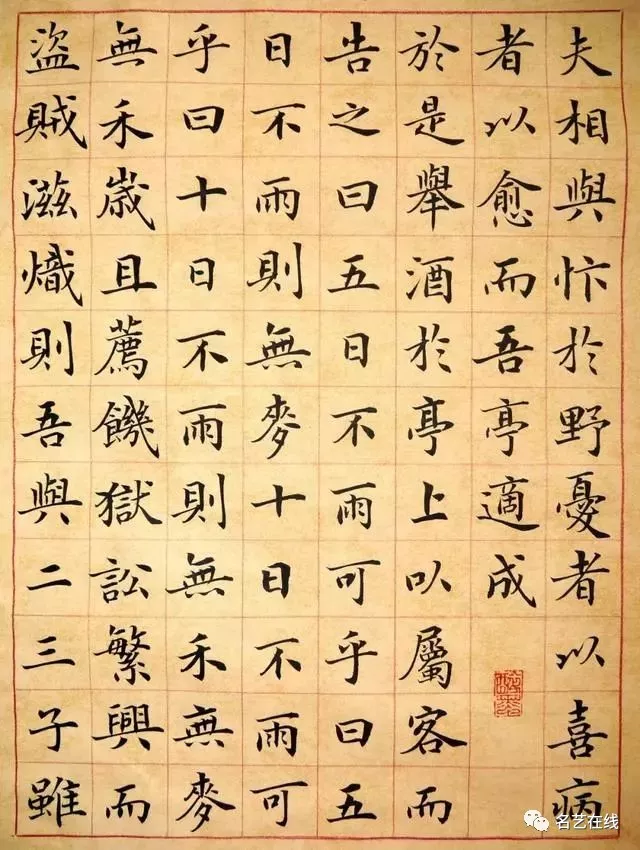 夫相與忭於野憂者以喜病
者以愈而吾亭適成
於是舉酒於亭上以屬客而
告之曰五日不雨可乎曰五
日不雨則無麥十日不雨可
乎曰十日不雨則無禾無麥
無禾歲且薦饑獄訟繁興而
盜賊滋熾則吾與二三子雖
名艺在线